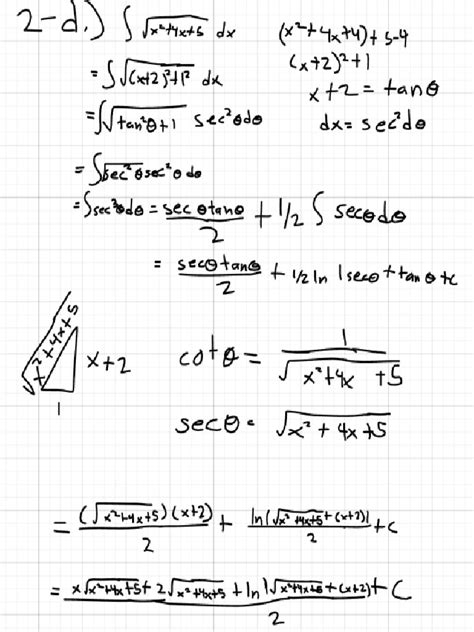 2-d.) ∫ √(x²+4x+5) dx
(x²+4x+4)+5-4
= ∫ √((x+2)²+1²) dx
(x+2)²+1
x+2 = tanθ
= ∫ √(tan²θ+1) sec²θdθ
dx = sec²dθ
= ∫ √(sec²θ) sec²θ dθ
= ∫sec³θdθ = secθtanθ/2 + 1/2 ∫ secθdθ
= secθtanθ/2 + 1/2 ln |secθ + tanθ + c
√x²+4x+5
x+2
1
cotθ = 1/√(x²+4x+5)
secθ = √(x²+4x+5)
= (√(x²+4x+5))(x+2)/2 + ln|√(x²+4x+5)+(x+2)|/2 + c
= (x√(x²+4x+5) + 2√(x²+4x+5) + ln|√(x²+4x+5)+(x+2)|)/2 + C